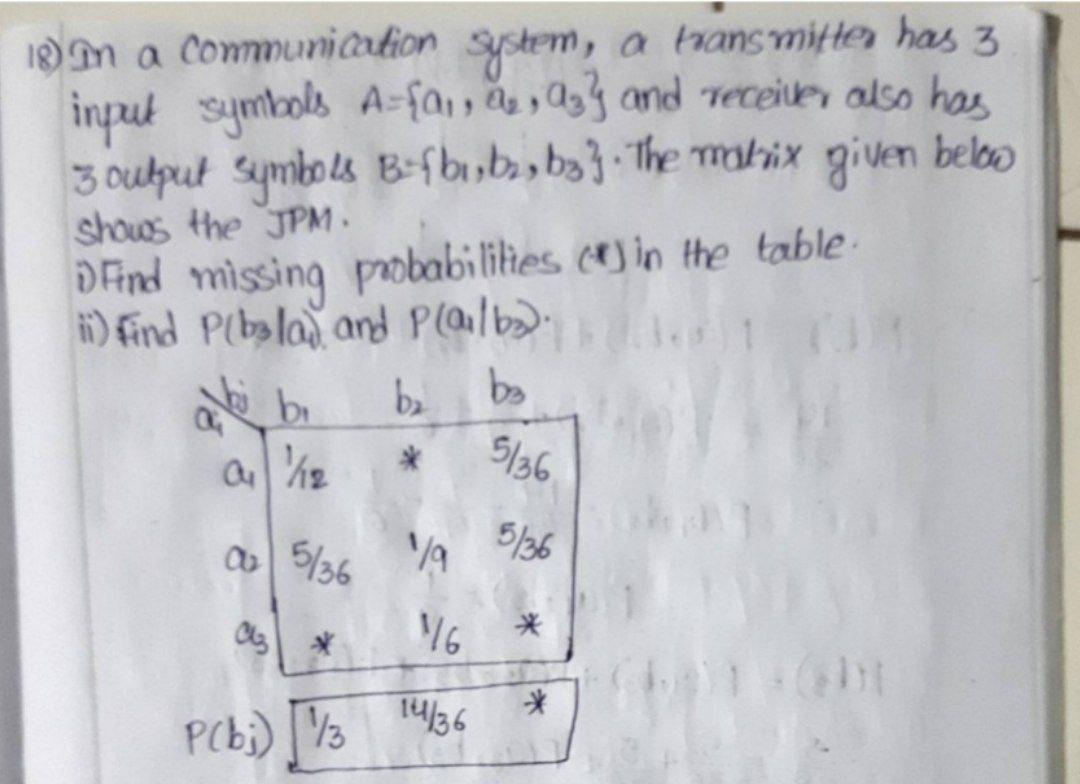 18) In a communication system, a transmitter has 3
input symbols A={a₁, a₂, a₃} and receiver also has
3 output symbols B={b₁, b₂, b₃}. The matrix given below
shows the JPM.
i) Find missing probabilities (*) in the table.
ii) Find P(b₃|a₁) and P(a₁|b₃).
bj b₁ b₂ b₃
ai
a₁ 1/12 * 5/36
a₂ 5/36 1/9 5/36
a₃ * 1/6 *
P(bj) 1/3 14/36 *